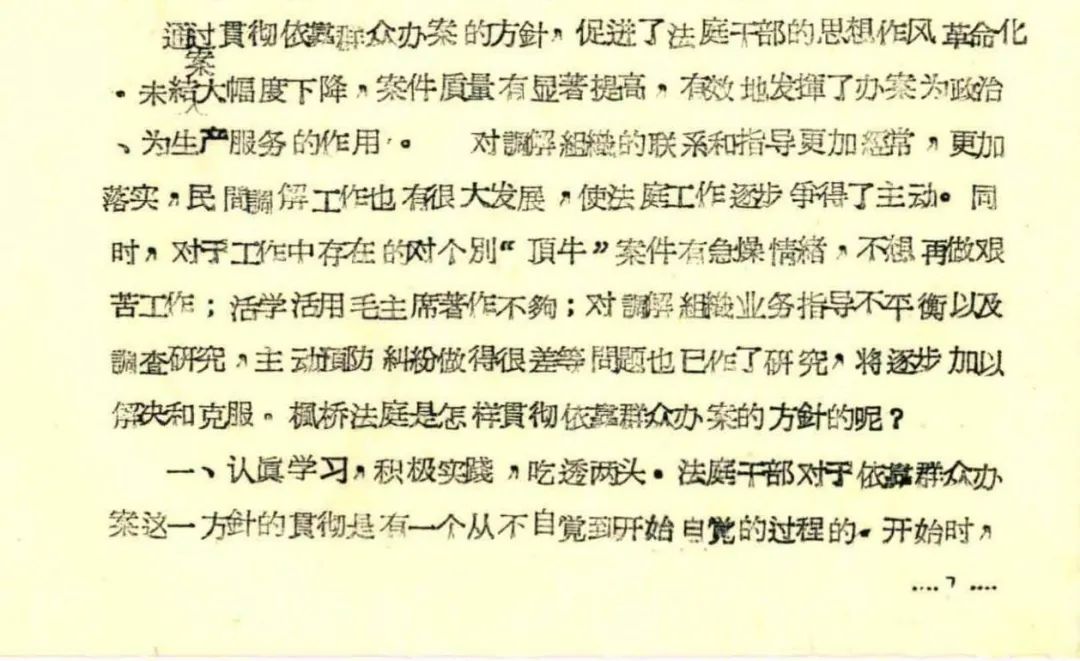 通过貫彻依靠群众办案的方針，促进了法庭干部的思想作风革命化
案
。未結大幅度下降，案件质量有显著提高，有效地发揮了办案为政治
、为生产服务的作用。 对調解組織的联系和指导更加經常，更加
落实，民間調解工作也有很大发展，使法庭工作逐步爭得了主动。同
时，对于工作中存在的对个別“頂牛”案件有急燥情緒，不想再做艰
苦工作；活学活用毛主席著作不夠；对調解組織业务指导不平衡以及
調查研究，主动預防糾紛做得很差等問題也已作了研究，将逐步加以
解决和克服。楓桥法庭是怎样貫彻依靠群众办案的方針的呢？
一、认眞学习，积极实践，吃透两头。法庭干部对于依靠群众办
案这一方針的貫彻是有一个从不自覚到开始自覚的过程的。开始时，